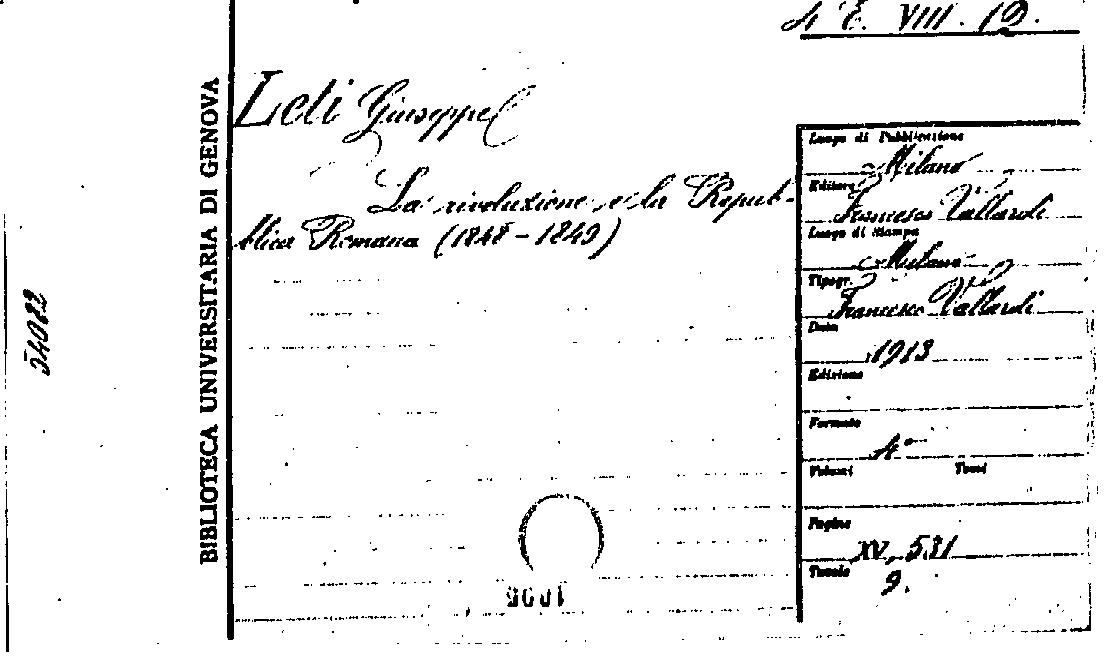 4 E. VIII. 12.
BIBLIOTECA UNIVERSITARIA DI GENOVA
54022
Leti Giuseppe
La rivoluzione e la Repub-
blica Romana (1848-1849)
Luogo di Pubblicazione
Milano
Editore
Francesco Vallardi
Luogo di Stampa
Milano
Tipogr.
Francesco Vallardi
Data
1913
Edizione
Formato
4°
Volumi Tomi
Pagine
XV, 531
Tavole
9.